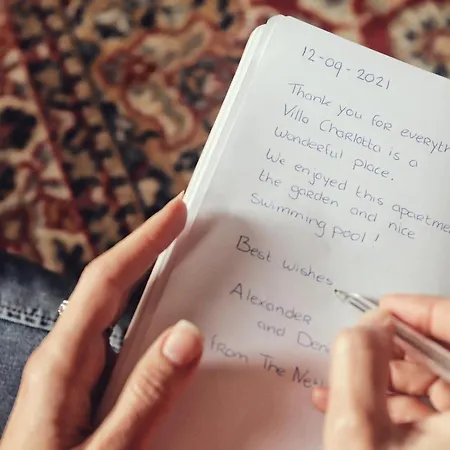 12-09-2021
Thank you for everyth
Villa Charlotta is a
wonderful place.
We enjoyed this apartme
the garden and nice
swimming pool!
Best wishes
Alexander
and Den
from The Ne